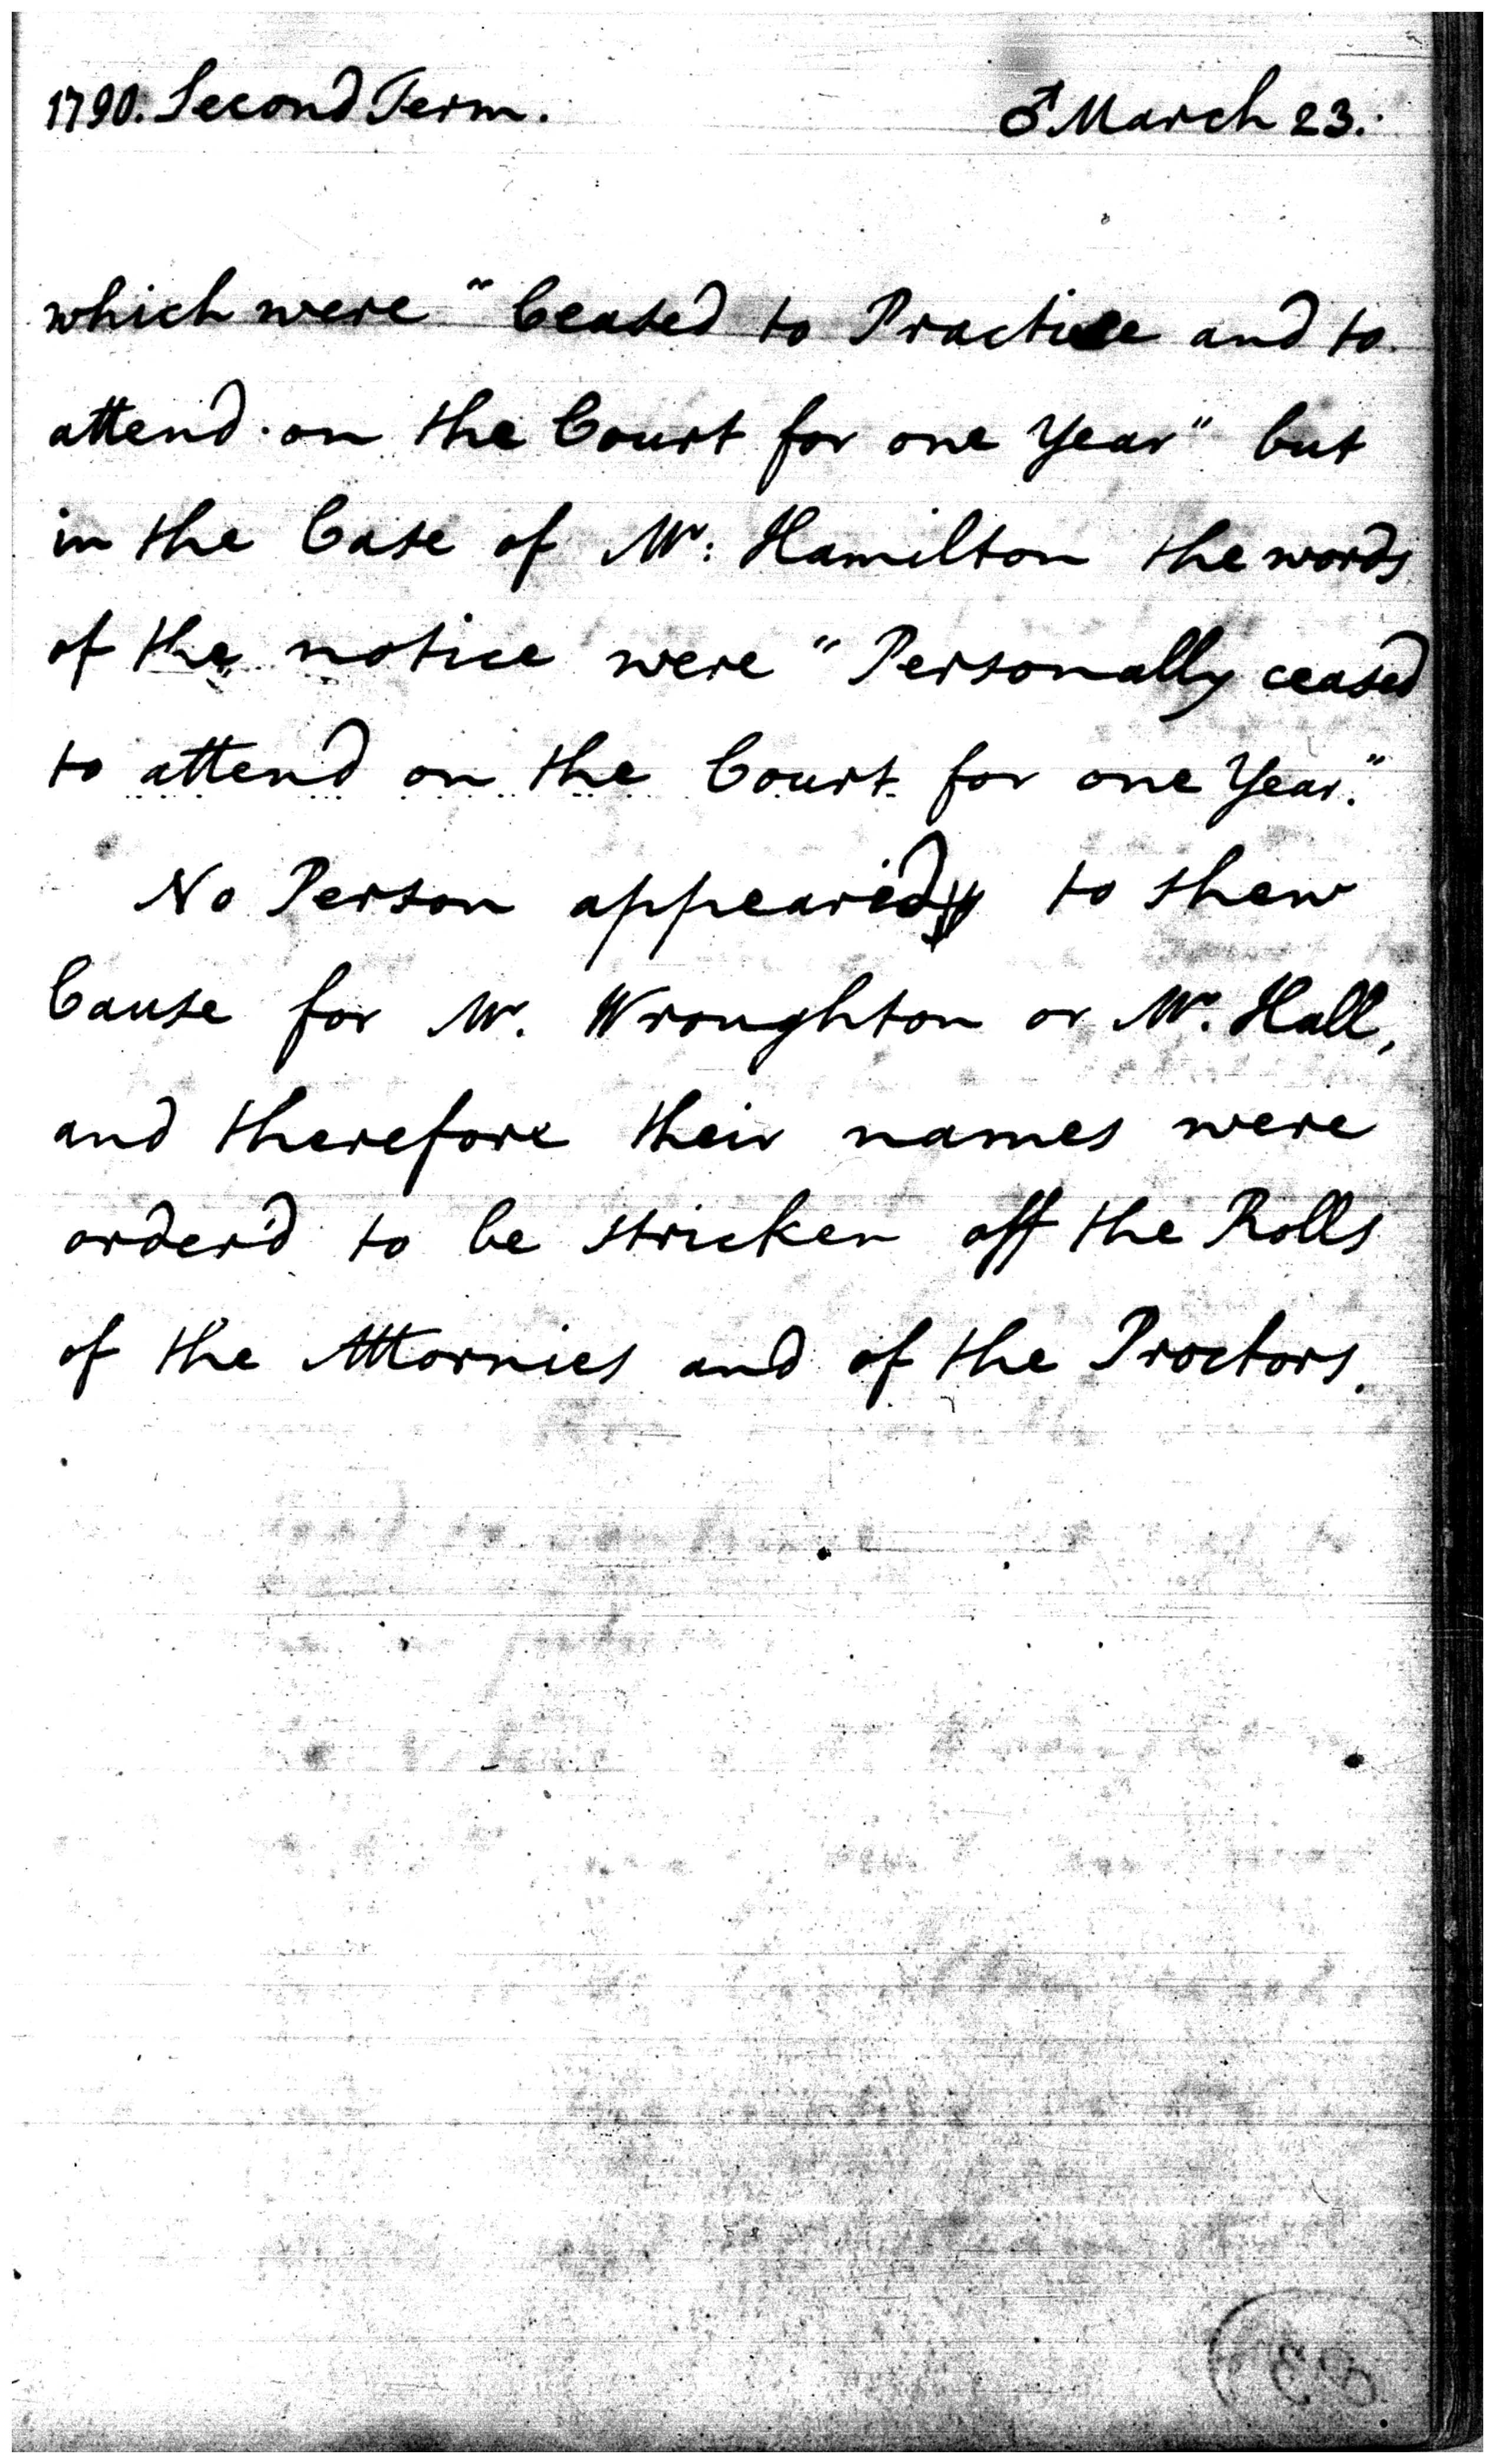 1790. Second Term. ♂ March 23.
which were "Ceased to Practice and to
attend on the Court for one Year" but
in the Case of Mr. Hamilton the words
of the notice were "Personally ceased
to attend on the Court for one Year."
No Person appeared to shew
Cause for Mr. Wroughton or Mr. Hall,
and therefore their names were
order'd to be stricken off the Rolls
of the Attornies and of the Proctors.